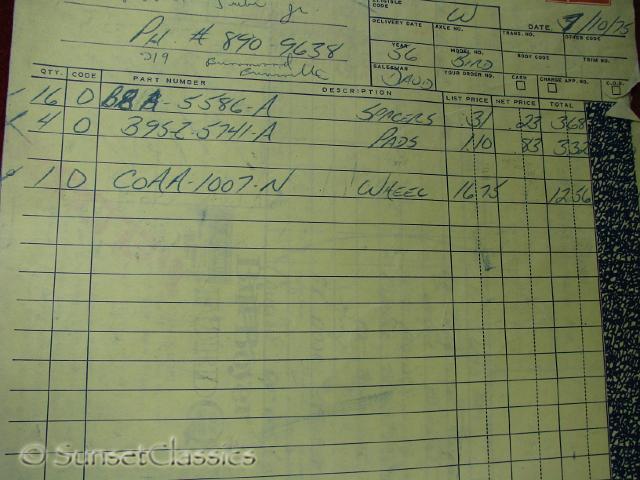 Jr.
ELIGIBLE CODE W
DELIVERY DATE AXLE NO. TRANS. NO. DATE 9/10/75 OTHER CODE
PH. # 890-9638
219
YEAR 56 MODEL NO. BIRD BODY CODE TRIM NO.
SALESMAN DAVID YOUR ORDER NO. CASH CHARGE APP. NO. C.O.D.
QTY. CODE PART NUMBER DESCRIPTION LIST PRICE NET PRICE TOTAL
16 O B8A-5586-A SPACERS 31 23 368
4 O B95Z-5741-A PADS 110 83 332
1 O COAA-1007-N WHEEL 1675 1256
© SunsetClassics